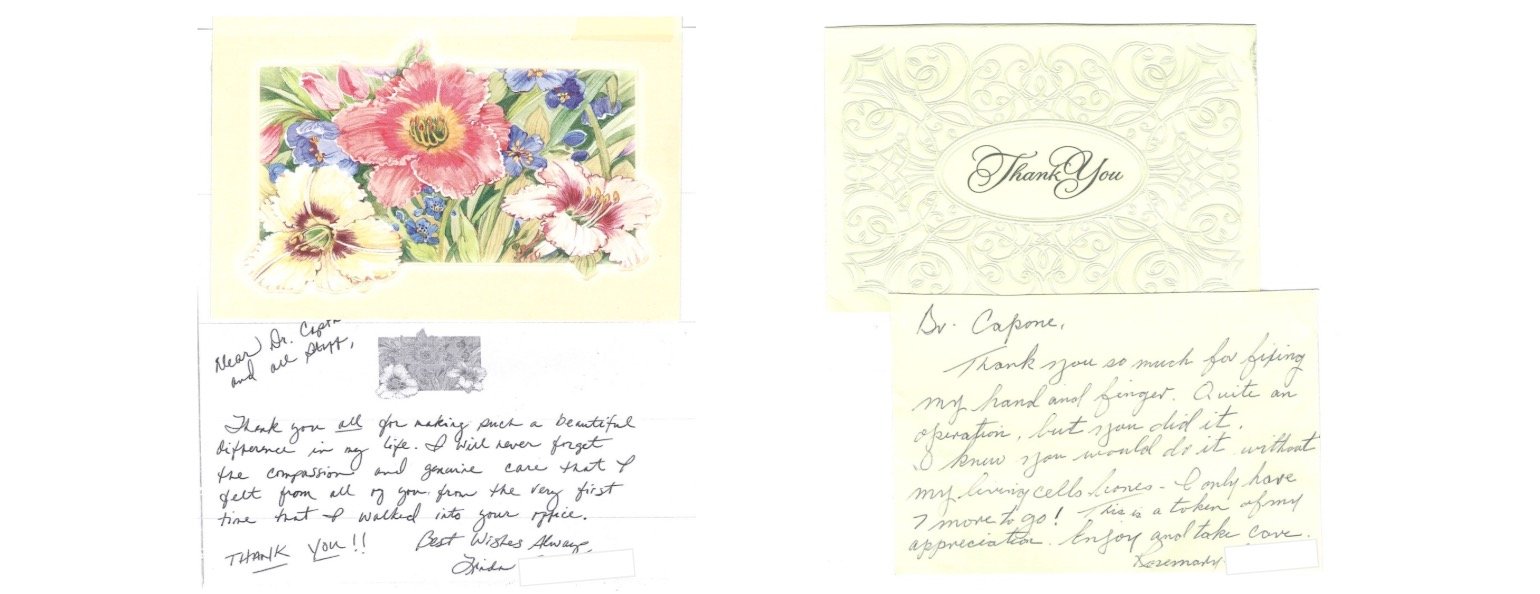 Dear Dr.
and all Staff,
Thank you all for making such a beautiful
difference in my life. I will never forget
the compassion and genuine care that I
felt from all of you from the very first
time that I walked into your office.
THANK YOU!!
Best Wishes Always,
Linda
Thank You
Dr. Capone,
Thank you so much for fixing
my hand and finger. Quite an
operation, but you did it.
I knew you would do it without
my living cells bones - I only have
7 more to go! This is a token of my
appreciation. Enjoy and take care.
Rosemary